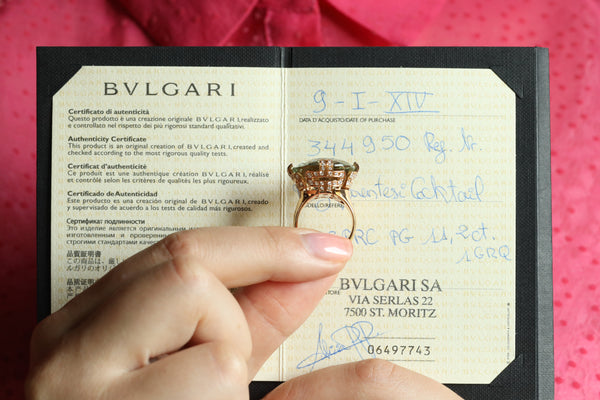 BVLGARI
Certificato di autenticità
Questo prodotto è una creazione originale BVLGARI, realizzato
e controllato nel rispetto dei più rigorosi standard qualitativi.
Authenticity Certificate
This product is an original creation of BVLGARI, created and
checked according to the most rigorous quality tests.
Certificat d'authenticité
Ce produit est une authentique création BVLGARI, réalisé
et contrôlé selon les critères de qualités les plus rigoureux.
Certificado de Autenticidad
Este producto es una creación original de BVLGARI, creado
y supervisado de acuerdo a los tests de calidad más rigurosos.
Сертификат подлинности
Это изделие является оригинальным
изготовленным и проверенным
строгими стандартами
品質証明書
この商品は、厳し
ルガリのオリ
品質証明書
9-I-XIV
DATA D'ACQUISTO/DATE OF PURCHASE
344950 Reg. Nr.
Cocktail
PG 11,
1GRQ
BVLGARI SA
VIA SERLAS 22
7500 ST. MORITZ
06497743